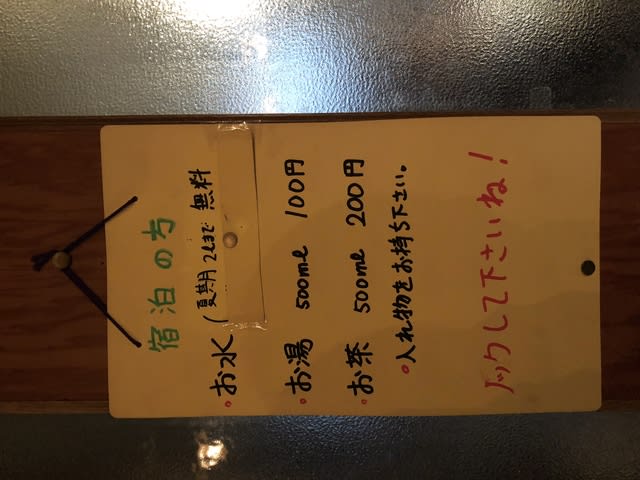 宿泊の方
・お水 (夏期 2ℓまで 無料
・お湯 500mℓ 100円
・お茶 500mℓ 200円
・入れ物をお持ち下さい。
ノックして下さいね!